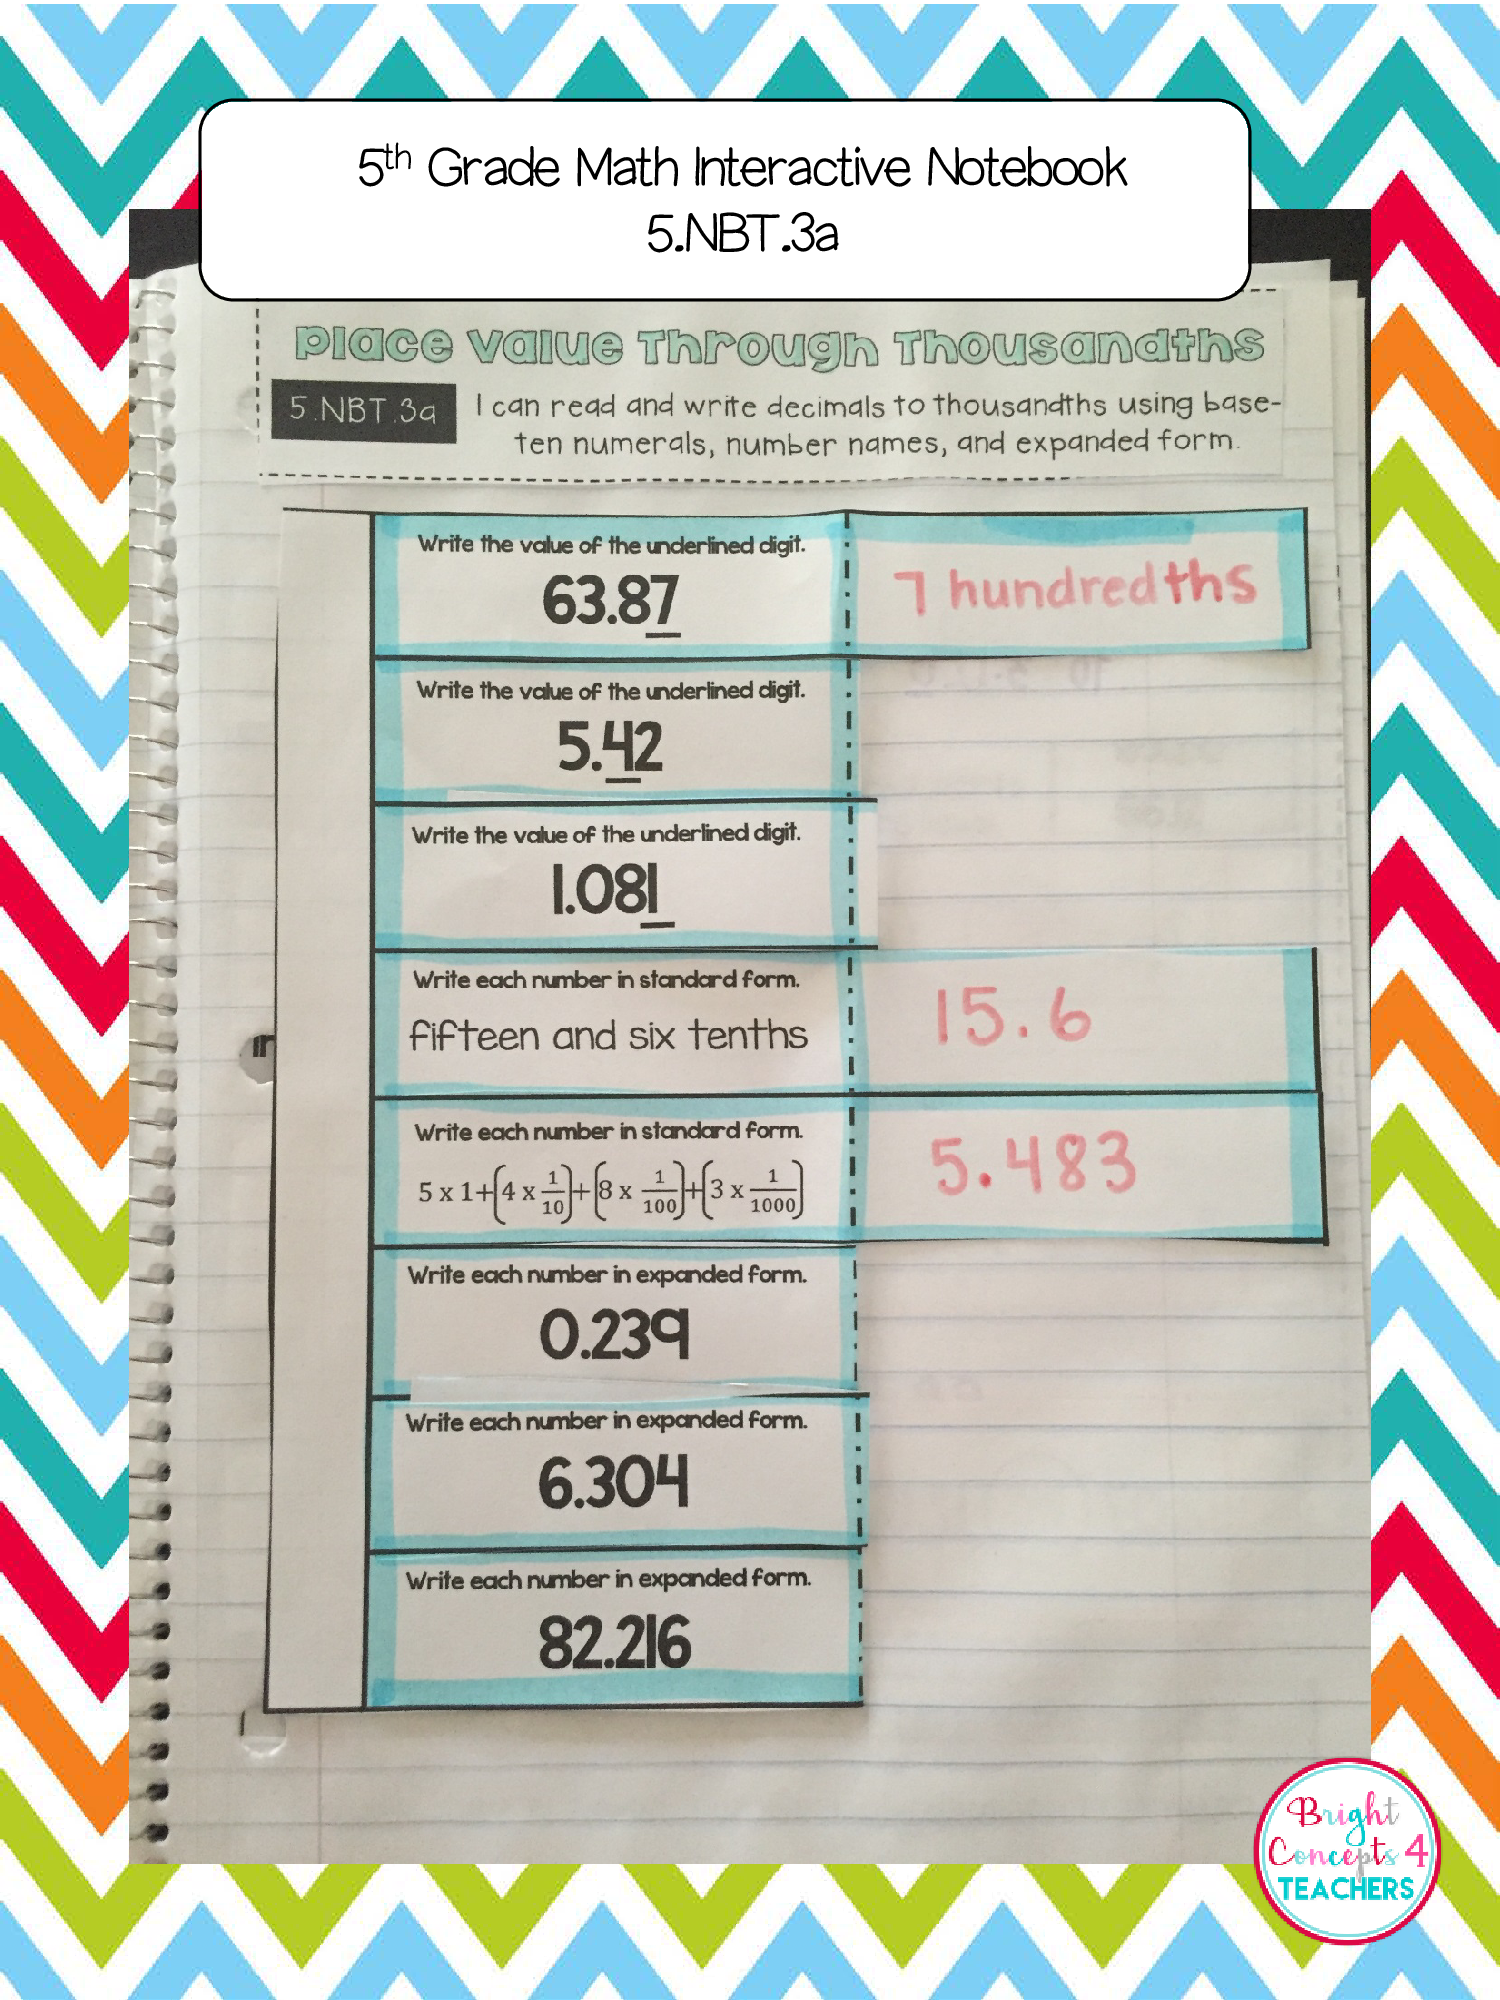 5th Grade Math Interactive Notebook
5.NBT.3a
Place Value Through Thousandths
5.NBT.3a
I can read and write decimals to thousandths using base-
ten numerals, number names, and expanded form.
Write the value of the underlined digit.
63.87
7 hundredths
Write the value of the underlined digit.
5.42
Write the value of the underlined digit.
1.081
Write each number in standard form.
fifteen and six tenths
15.6
Write each number in standard form.
5 x 1+(4 x 1/10)+(8 x 1/100)+(3 x 1/1000)
5.483
Write each number in expanded form.
0.239
Write each number in expanded form.
6.304
Write each number in expanded form.
82.216
Bright
Concepts 4
TEACHERS